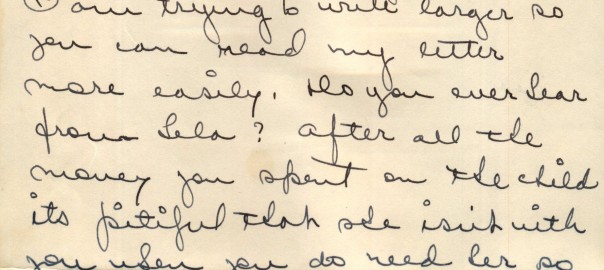 I am trying to write larger so
you can read my letter
more easily. Do you ever hear
from Lela? After all the
money you spent on the child
its pitiful that she isn't with
you when you do need her so